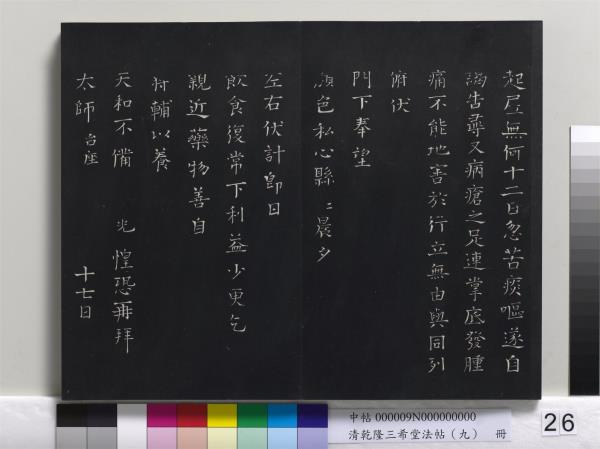 起居無何十二日忽苦痰嘔遂自
謁告尋又病瘡之足連掌底發腫
痛不能地害於行立無由與同列
俯伏
門下奉望
顏色私心縣〻晨夕
左右伏計即日
飲食復常下利益少更乞
親近藥物善自
將輔以養
天和不備 光 惶恐再拜
太師 台座
十七日
中帖 000009N000000000
清乾隆三希堂法帖（九） 冊
26